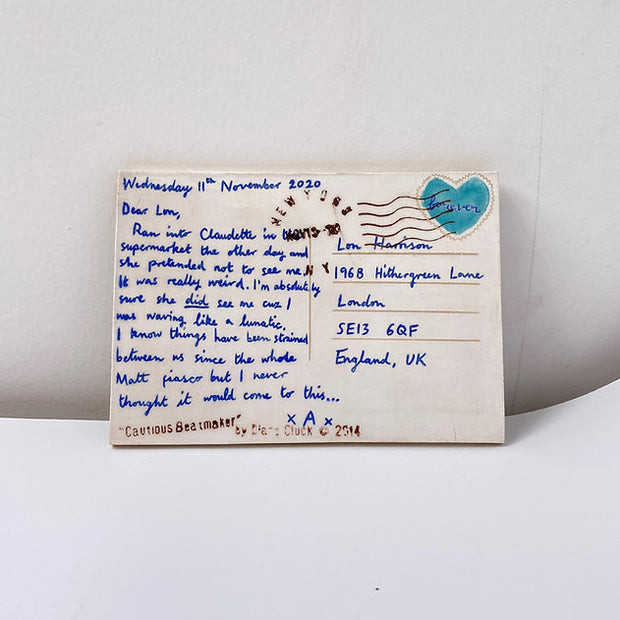 Wednesday 11th November 2020
Dear Lon,
Ran into Claudette in the
supermarket the other day and
she pretended not to see me.
It was really weird. I'm absolutely
sure she did see me cuz I
was waving like a lunatic.
I know things have been strained
between us since the whole
Matt fiasco but I never
thought it would come to this...
x A x
"Cautious Beatmaker" by Diane Cluck © 2014
NEW YORK
NY
forever
Lon Harrison
196B Hithergreen Lane
London
SE13 6QF
England, UK